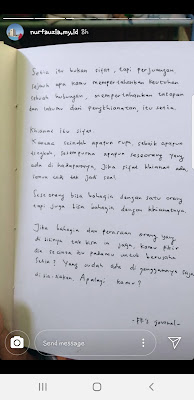 nurfauzia.my.id 8h
Setia itu bukan sifat, tapi perjuangan.
Sejauh apa kamu mempertahankan keutuhan
sebuah hubungan, mempertahankan tatapan
dan lakumu dari pengkhianatan, itu setia.
Khianat itu sifat.
Karena secantik apapun rupa, sebaik apapun
tingkah, sempurna apapun seseorang yang
ada di hadapannya, jika sifat khianat ada.
semua tak jadi soal.
Seseorang bisa bahagia dengan satu orang
tapi juga bisa bahagia dengan khianatnya.
Jika bahagia dan perasaan orang yang
di sisinya tak bisa ia jaga, kamu pikir
dia secinta itu padamu untuk berusaha
setia? Yang sudah ada di genggamannya saja
di sia-siakan. Apalagi kamu?
-FF's journal-
Send message